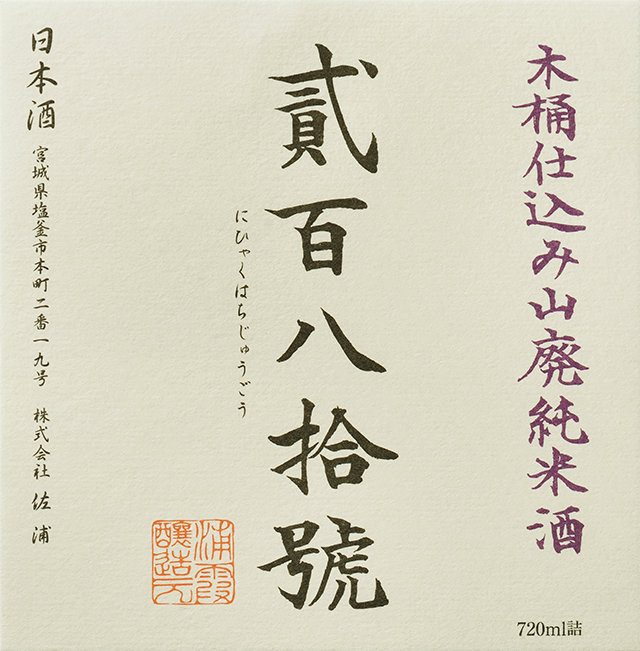 木桶仕込み山廃純米酒
貳百八拾號
にひゃくはちじゅうごう
浦霞
醸造元
日本酒 宮城県塩釜市本町二番一九号 株式会社 佐浦
720ml詰